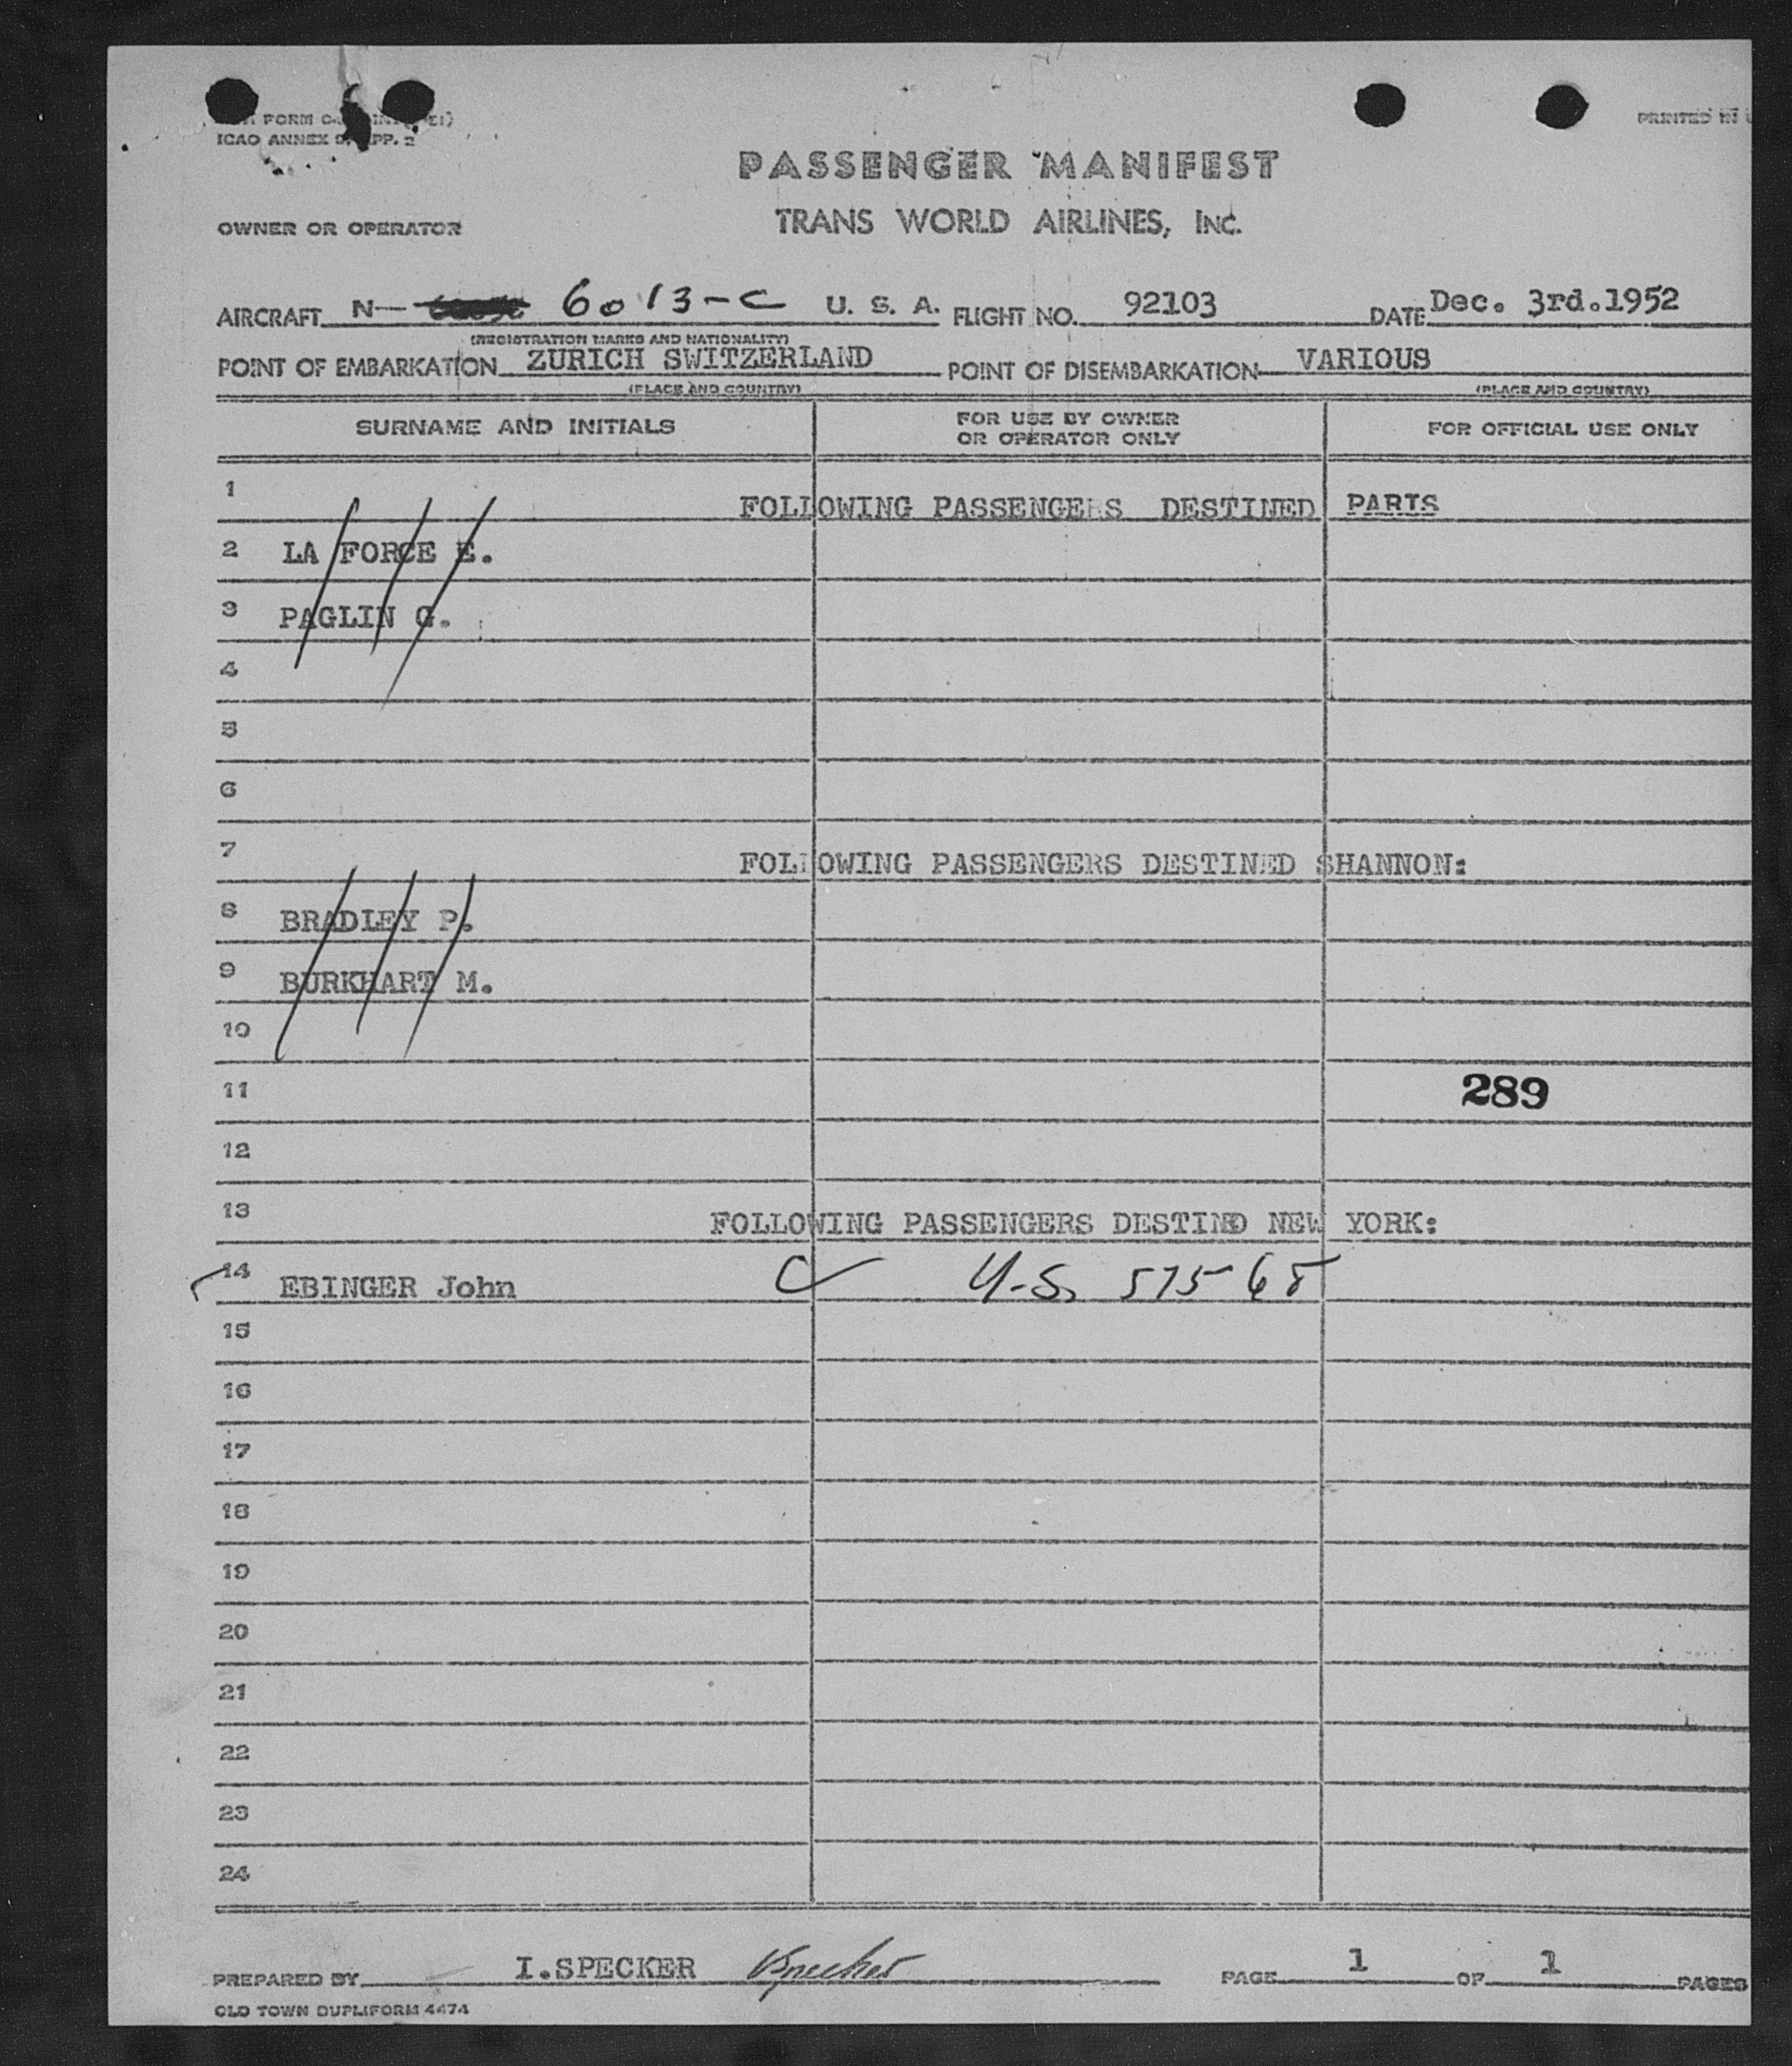 FORM
ICAO ANNEX 9, APP. 2
PRINTED IN U
PASSENGER MANIFEST
OWNER OR OPERATOR TRANS WORLD AIRLINES, INC.
AIRCRAFT N- 6013-C U. S. A. FLIGHT NO. 92103 DATE Dec. 3rd.1952
(REGISTRATION MARKS AND NATIONALITY)
POINT OF EMBARKATION ZURICH SWITZERLAND POINT OF DISEMBARKATION VARIOUS
(PLACE AND COUNTRY) (PLACE AND COUNTRY)
SURNAME AND INITIALS FOR USE BY OWNER OR OPERATOR ONLY FOR OFFICIAL USE ONLY
1 FOLLOWING PASSENGERS DESTINED PARIS
2 LA FORCE E.
3 PAGLIN G.
4
5
6
7 FOLLOWING PASSENGERS DESTINED SHANNON:
8 BRADLEY P.
9 BURKHART M.
10
11 289
12
13 FOLLOWING PASSENGERS DESTIND NEW YORK:
14 EBINGER John C U.S. 57568
15
16
17
18
19
20
21
22
23
24
PREPARED BY I.SPECKER Specker PAGE 1 OF 1 PAGES
OLD TOWN DUPLIFORM 4474